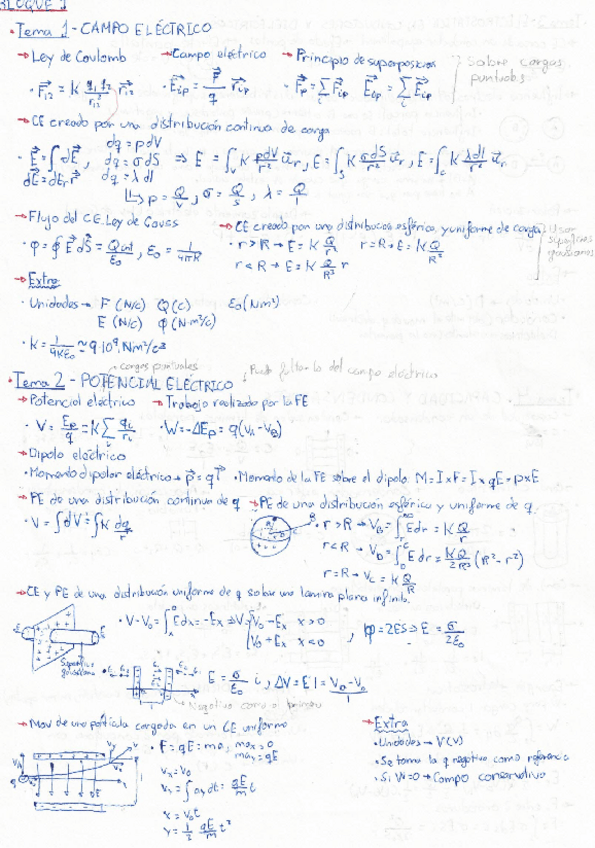 BLOQUE 1
· Tema 1 - CAMPO ELÉCTRICO
→ Ley de Coulomb → Campo eléctrico → Principio de superposición
Sobre cargas puntuales
· F₁₂ = K q₁q₂/r₁₂² r₁₂ · E_ip = F/q r_ip · F_p = Σ F_ip E_ip = Σ E_ip
→ CE creado por una distribución continua de carga
dq = ρdV
· E = ∫dE, dq = σdS ⇒ E = ∫_V K ρdV/r² u_r, E = ∫_S K σdS/r² u_r, E = ∫_C K λdl/r² u_r
dE = dE_r r dq = λdl
↳ ρ = Q/V, σ = Q/S, λ = Q/l
→ Flujo del CE. Ley de Gauss → CE creado por una distribución esférica y uniforme de carga
Usar superficies gaussianas
· φ = ∮ E dS = Q int/ε₀, ε₀ = 1/4πK · r > R → E = K Q/r² r = R → E = K Q/R²
r < R → E = K Q/R³ r
→ Extra:
· Unidades → F (N/C) Q (C) ε₀ (Nm²)
E (N/C) φ (N·m²/C)
· K = 1/4πε₀ ≃ 9·10⁹ Nm²/C²
cargas puntuales
Puede faltar lo del campo eléctrico
· Tema 2 - POTENCIAL ELÉCTRICO
→ Potencial eléctrico → Trabajo realizado por la FE
· V = Ep/q = K Σ qᵢ/rᵢ · W = -ΔEp = q(V_A - V_B)
→ Dipolo eléctrico
· Momento dipolar eléctrico → p = q l · Momento de la FE sobre el dipolo: M = l x F = l x qE = p x E
→ PE de una distribución continua de q → PE de una distribución esférica y uniforme de q.
· V = ∫dV = ∫K dq/r
· r > R → V_B = ∫ E dr = K Q/r
r < R → V_D = ∫ E dr = KQ/2R³ (R² - r²)
r = R → V_C = K Q/R
→ CE y PE de una distribución uniforme de q sobre una lámina plana infinita.
· V - V₀ = ∫ E dx = -Ex ⇒ V = V₀ - Ex x > 0
V₀ + Ex x < 0
, φ = 2ES ⇒ E = σ/2ε₀
Superficie gaussiana
E = σ/ε₀ i, ΔV = E·l = V_D - V_0/l
Negativo como primero
→ Mov de una partícula cargada en un CE uniforme → Extra
· F = qE = ma, max = 0
may = qE
· Unidades → V (V)
· Se toma la q negativa como referencia
· Si W = 0 → Campo conservativo
v_x = v₀
v_y = ∫ a_y dt = qE/m t
x = v₀t
y = 1/2 qE/m t²